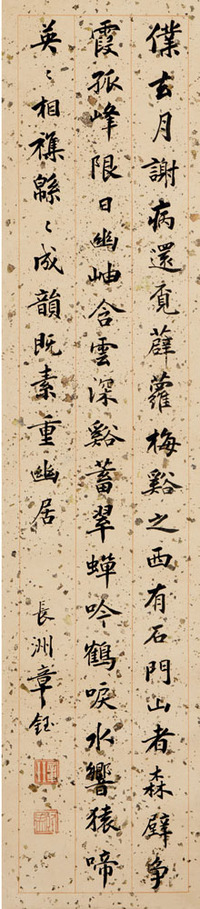 僕去月謝病還覓薜蘿梅谿之西有石門山者森壁爭
霞孤峰限日幽岫含雲深谿蓄翠蟬吟鶴唳水響猿啼
英〻相雜緜〻成韻既素重幽居
長洲章鈺